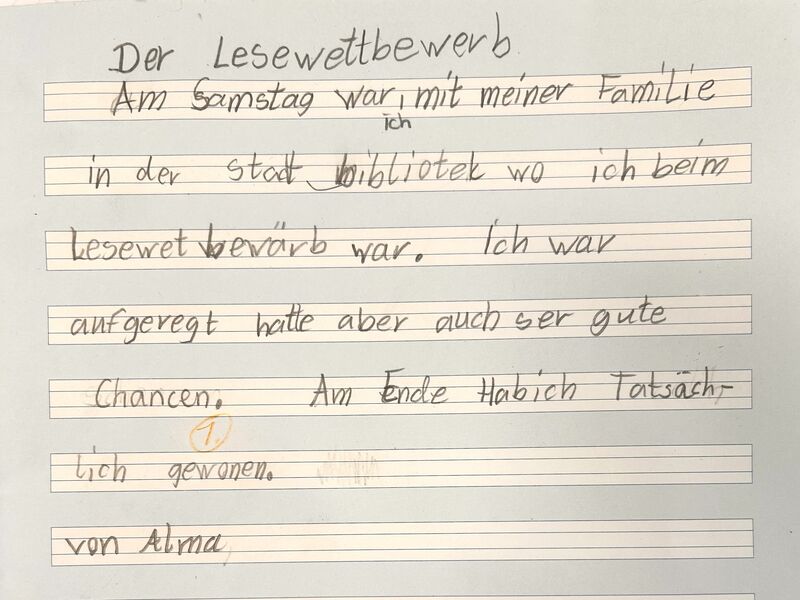 Der Lesewettbewerb
Am Samstag war, mit meiner Familie
ich
in der stadt bibliotek wo ich beim
Lesewet bewärb war. Ich war
aufgeregt hatte aber auch ser gute
Chancen. Am Ende Habich Tatsäch-
1.
lich gewonen.
von Alma